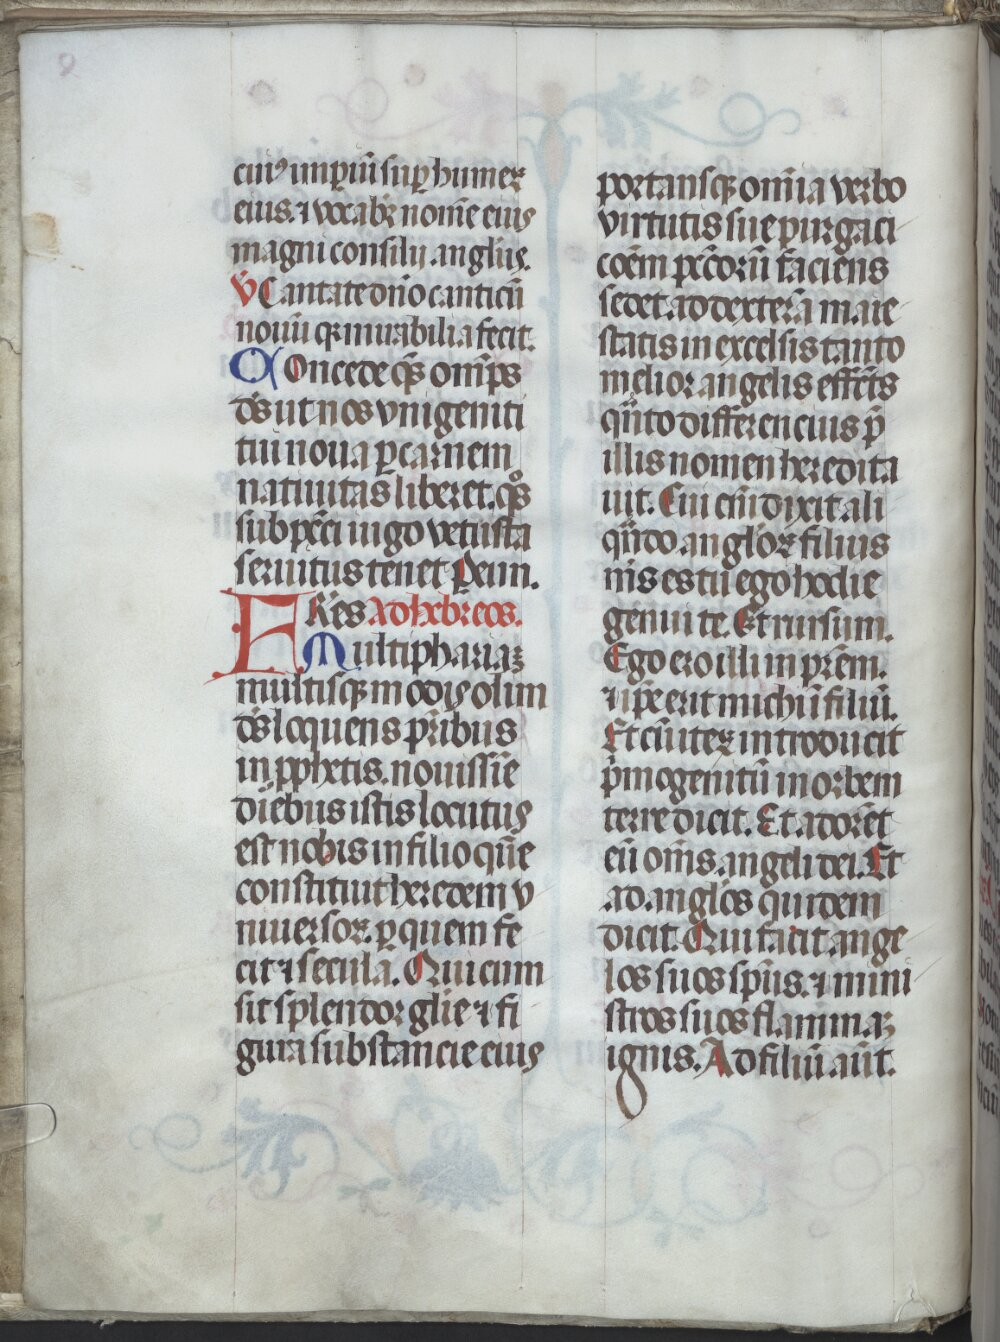 cui⁹ imp̱iū sup̱ humeꝝ
eius. ⁊ vocabiͭ nom̄e eiꝰ
magni consilij anglꝰ.
v̄ Cantate dn̄o canticū
nouū qꝛ mirabilia fecit.
Concede qs̄ om̄ps
ds̄ ut nos vnigeniti
tui noua p̱ carnem
natiuitas liberet. qͦs
sub pc̄ci iugo vetusta
seruitus tenet Peun.
Fr̄es ad hebreos.
Multiphariaꝫ
multisqꝫ modꝭ olim
ds̄ loquens pr̄ibus
in pphetis. nouissīe
dīebus istis locutꝰ
est nobis in filio quē
constituit heredem v
niuersoꝝ. p̱ quem fe
cit ⁊ secula. Qui cum
sit splendor glīe ⁊ fi
gura substancie eiꝰ
portansqꝫ om̄ia verbo
virtutis sue purgaci
oēm pc̄corū faciens
sedet ad dexterā maie
statis in excelsis tanto
melior angelis effc̄ts
qn̄to differencius p̄
illis nomen heredita
uit. Cui eī dixit ali
qn̄do angloꝝ filius
mīs es tu ego hodie
genui te. Et rursum.
Ego ero illi in pr̄em.
⁊ ip̄e erit michi ī filiū.
Et cū iteꝝ introducit
pͥmogenitū in orbem
terre dicit. Et adorēt
eū om̄s angeli dei. Et
ad anglos quidem
dicit Qui facit ange
los suos sp̄us. ⁊ mini
stros suos flammaꝫ
ignis. Ad filiū aūt.